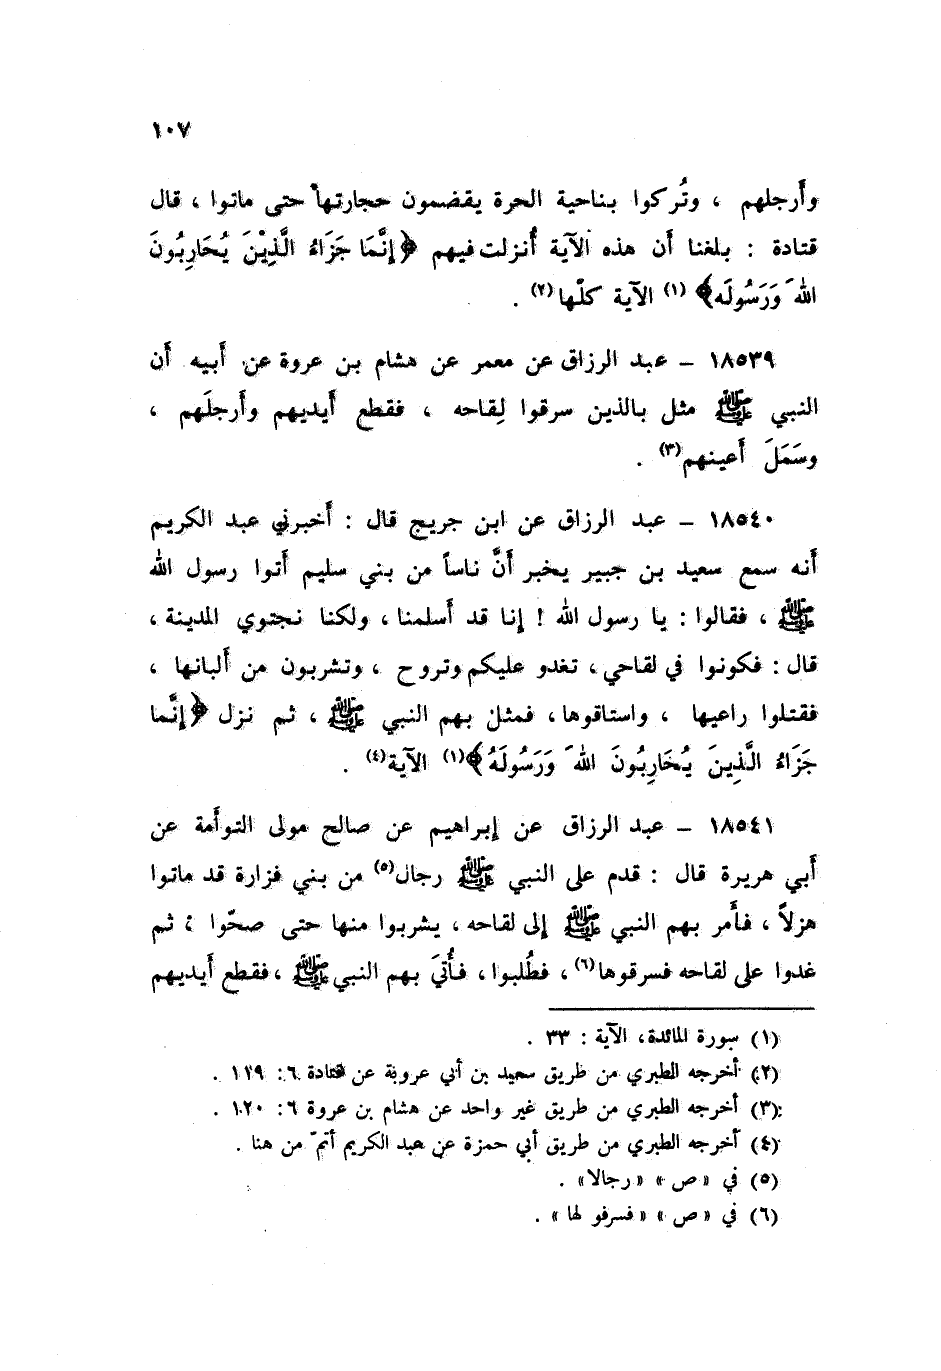 ١٠٧
وأَرجلهم ، وتُركوا بناحية الحرة يقضمون حجارتها حتى ماتوا ، قال
قتادة : بلغنا أَن هذه الآية أُنزلت فيهم ﴿إِنَّمَا جَزَاءُ الَّذِيْنَ يُحَارِبُونَ
اللهَ وَرَسُولَه﴾ (١) الآية كلّها(٢) .
١٨٥٣٩ – عبد الرزاق عن معمر عن هشام بن عروة عن أَبيه أَن
النبي ﷺ مثل بالذين سرقوا لِقاحه ، فقطع أَيديهم وأَرجلَهم ،
وسَمَلَ أَعينهم(٣) .
١٨٥٤٠ – عبد الرزاق عن ابن جريج قال : أَخبرني عبد الكريم
أَنه سمع سعيد بن جبير يخبر أَنَّ ناساً من بني سليم أَتوا رسول الله
ﷺ ، فقالوا : يا رسول الله ! إِنا قد أَسلمنا ، ولكنا نجتوي المدينة ،
قال : فكونوا في لقاحي ، تغدو عليكم وتروح ، وتشربون من أَلبانها ،
فقتلوا راعيها ، واستاقوها ، فمثل بهم النبي ﷺ ، ثم نزل ﴿إِنَّما
جَزَاءُ الَّذِينَ يُحَارِبُونَ اللهَ وَرَسُولَهُ﴾(١) الآية(٤) .
١٨٥٤١ – عبد الرزاق عن إِبراهيم عن صالح مولى التوأَمة عن
أَبي هريرة قال : قدم على النبي ﷺ رجال(٥) من بني فزارة قد ماتوا
هزلاً ، فأَمر بهم النبي ﷺ إِلى لقاحه ، يشربوا منها حتى صحّوا ؛ ثم
غدوا على لقاحه فسرقوها(٦) ، فطُلبوا ، فأُتيَ بهم النبي ﷺ ، فقطع أَيديهم
(١) سورة المائدة، الآية : ٣٣ .
(٢) أخرجه الطبري من طريق سعيد بن أبي عروبة عن قتادة ٦: ١١٩ .
(٣) أخرجه الطبري من طريق غير واحد عن هشام بن عروة ٦: ١٢٠ .
(٤) أخرجه الطبري من طريق أبي حمزة عن عبد الكريم أتمّ من هنا .
(٥) في « ص » « رجالا» .
(٦) في « ص » « فسرفو لها » .